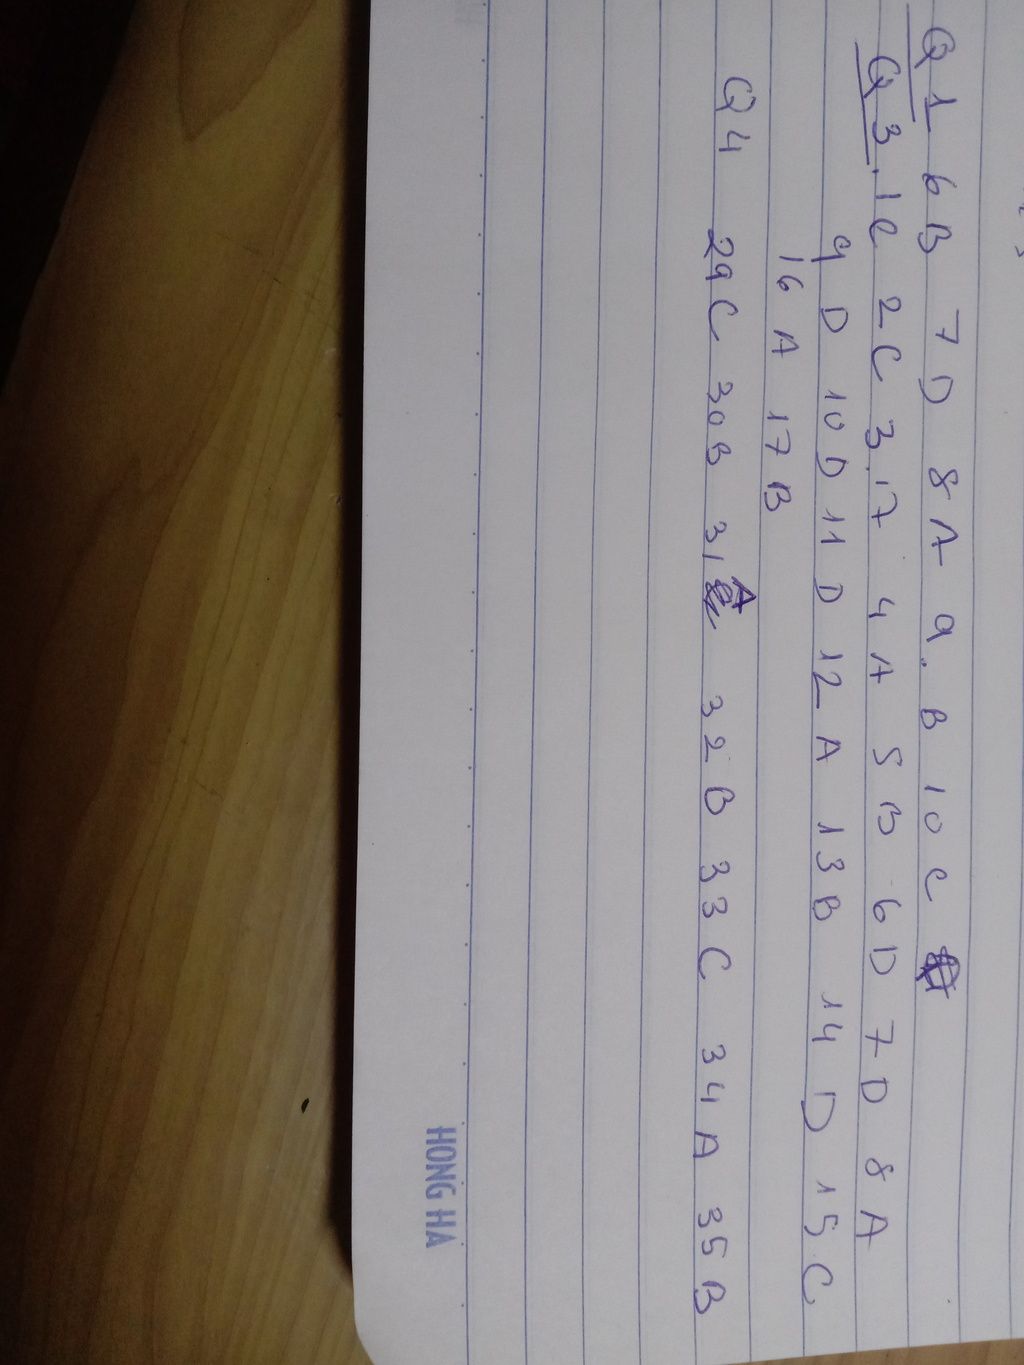 Q1 6B 7D 8A 9. B 10 C
Q3. 1C 2C 3. 17 4A 5B 6D 7D 8A
9D 10D 11D 12A 13B 14D 15C
16A 17B
Q4 29C 30B 31A 32B 33C 34A 35B
HONG HA